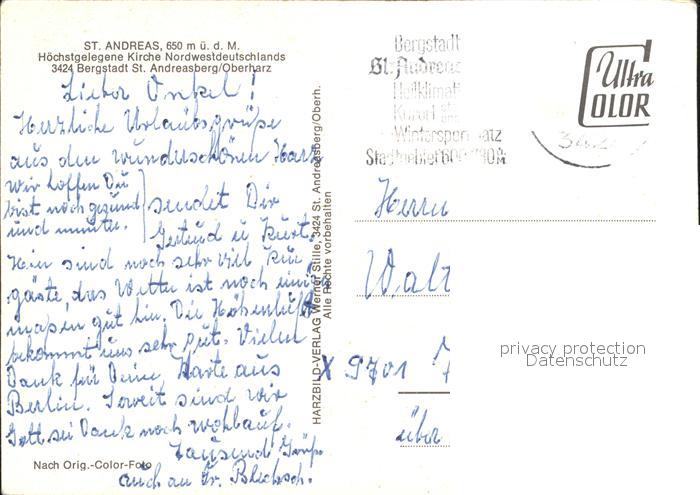 ST. ANDREAS, 650 m ü. d. M.
Höchstgelegene Kirche Nordwestdeutschlands
3424 Bergstadt St. Andreasberg/Oberharz
Lieber Onkel!
Herzliche Urlaubsgrüße
aus dem wunderschönen Harz
wir hoffen Du
bist noch gesund
und munter.
sendet Dir
Gertrud u Kurt.
Hier sind noch sehr viel Kur
gäste, das Wetter ist noch eini
maßen gut hin. Die Höhenluft
bekommt uns sehr gut. Vielen
Dank für Deine Karte aus
Berlin. Soweit sind wir
Gott sei Dank noch wohlauf.
Tausend Grüße
auch an Fr.
Nach Orig.-Color-Foto
HARZBILD-VERLAG Werner Stille, 3424 St. Andreasberg/Oberh.
Alle Rechte vorbehalten
Bergstadt
St. Andreas
Heilklimat
Kurort
Wintersportplatz
Stadtgebiet 600-
Ultra
COLOR
Herrn
Walt
X 9701
über
privacy protection
Datenschutz